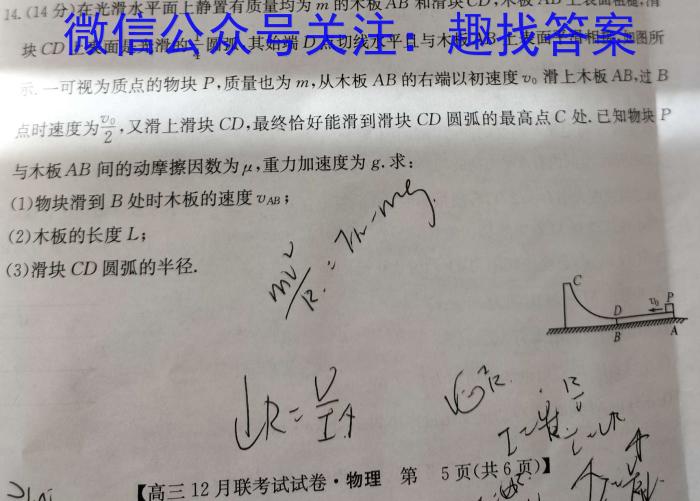 14.(14分)在光滑水平面上静置有质量均为m的木板AB和滑块CD,木板AB上表面粗糙,滑
块CD上表面是光滑的1/4圆弧,其始端D点切线水平且与木板AB上表面平滑相接,如图所
微信公众号关注:趣找答案
示.一可视为质点的物块P,质量也为m,从木板AB的右端以初速度v₀滑上木板AB,过B
点时速度为v₀/2,又滑上滑块CD,最终恰好能滑到滑块CD圆弧的最高点C处.已知物块P
与木板AB间的动摩擦因数为μ,重力加速度为g.求:
(1)物块滑到B处时木板的速度v_AB;
(2)木板的长度L;
(3)滑块CD圆弧的半径.
C
D
v₀
P
B
A
【高三12月联考试试卷·物理 第5页(共6页)】